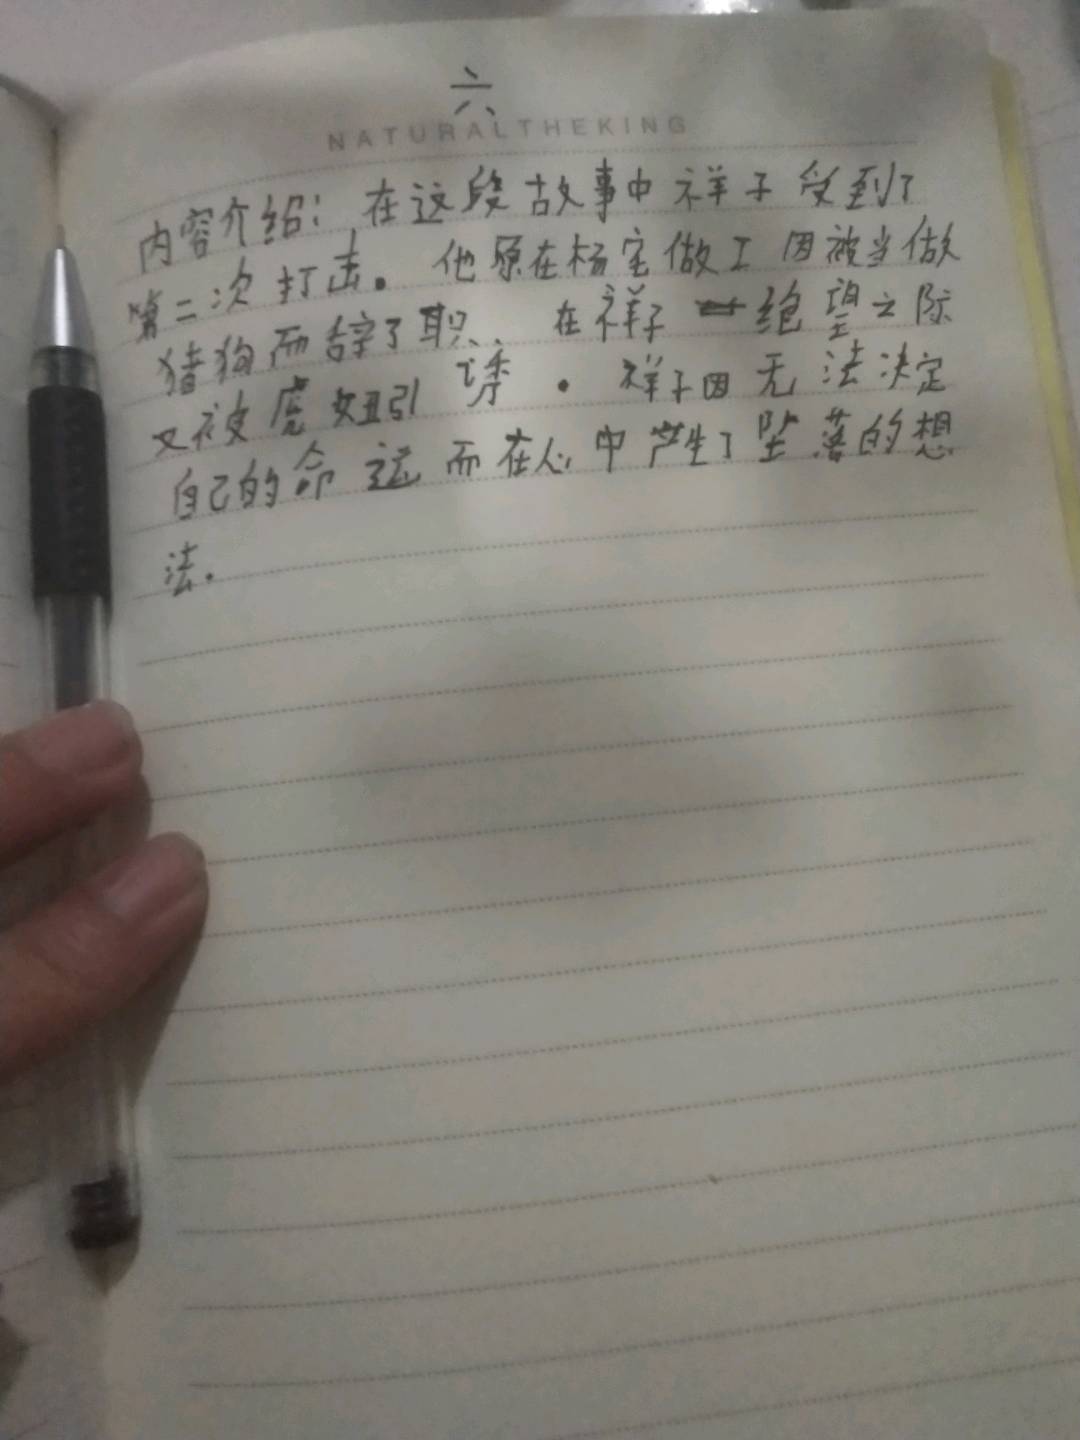 六
NATURALTHEKING
内容介绍：在这段故事中祥子受到了
第二次打击。他原在杨宅做工因被当做
猪狗而辞了职．在祥子绝望之际
又被虎妞引诱．祥子因无法决定
自己的命运而在心中产生了坠落的想
法．